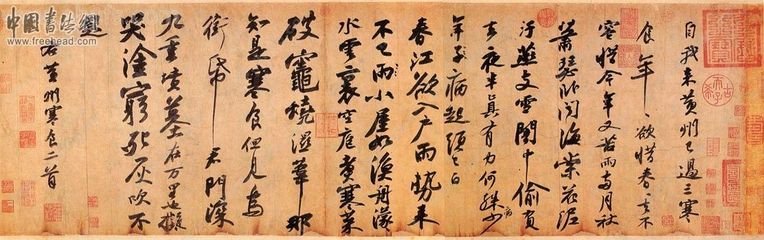 中國書法網
www.freehead.com
自我來黄州已過三寒
食年〻欲惜春〻去不
容惜今年又苦雨兩月秋
蕭瑟卧聞海棠花泥
汙燕支雪闇中偷負
去夜半真有力何殊少
年子病起頭已白
春江欲入户雨勢來
不已雨小屋如漁舟濛〻
水雲裏空庖煮寒菜
破竈燒濕葦那
知是寒食但見烏
銜帋君門深
九重墳墓在万里也擬
哭塗窮死灰吹不
起
右黄州寒食二首